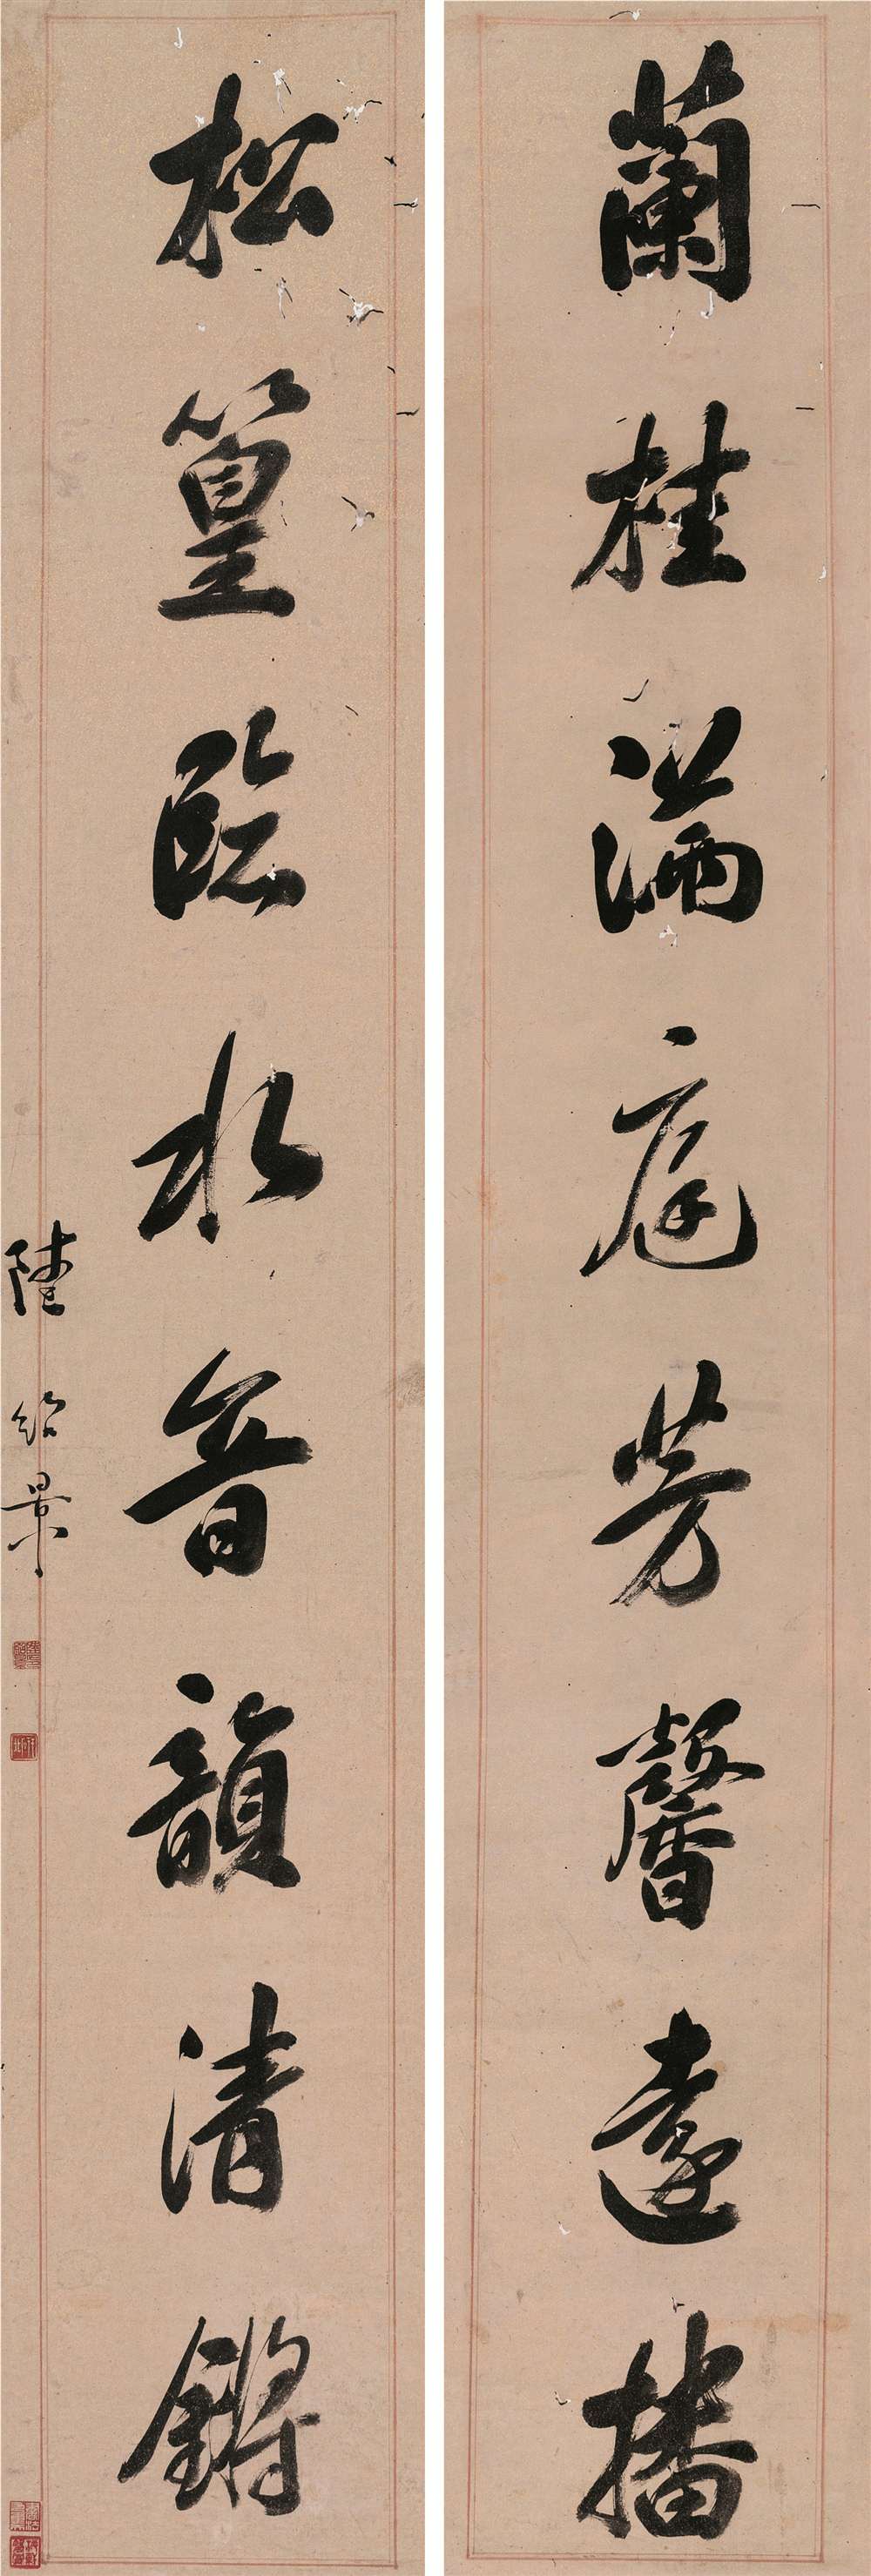 蘭桂滿庭芳馨遠播
松篁臨水音韻清鏘
陸紹景